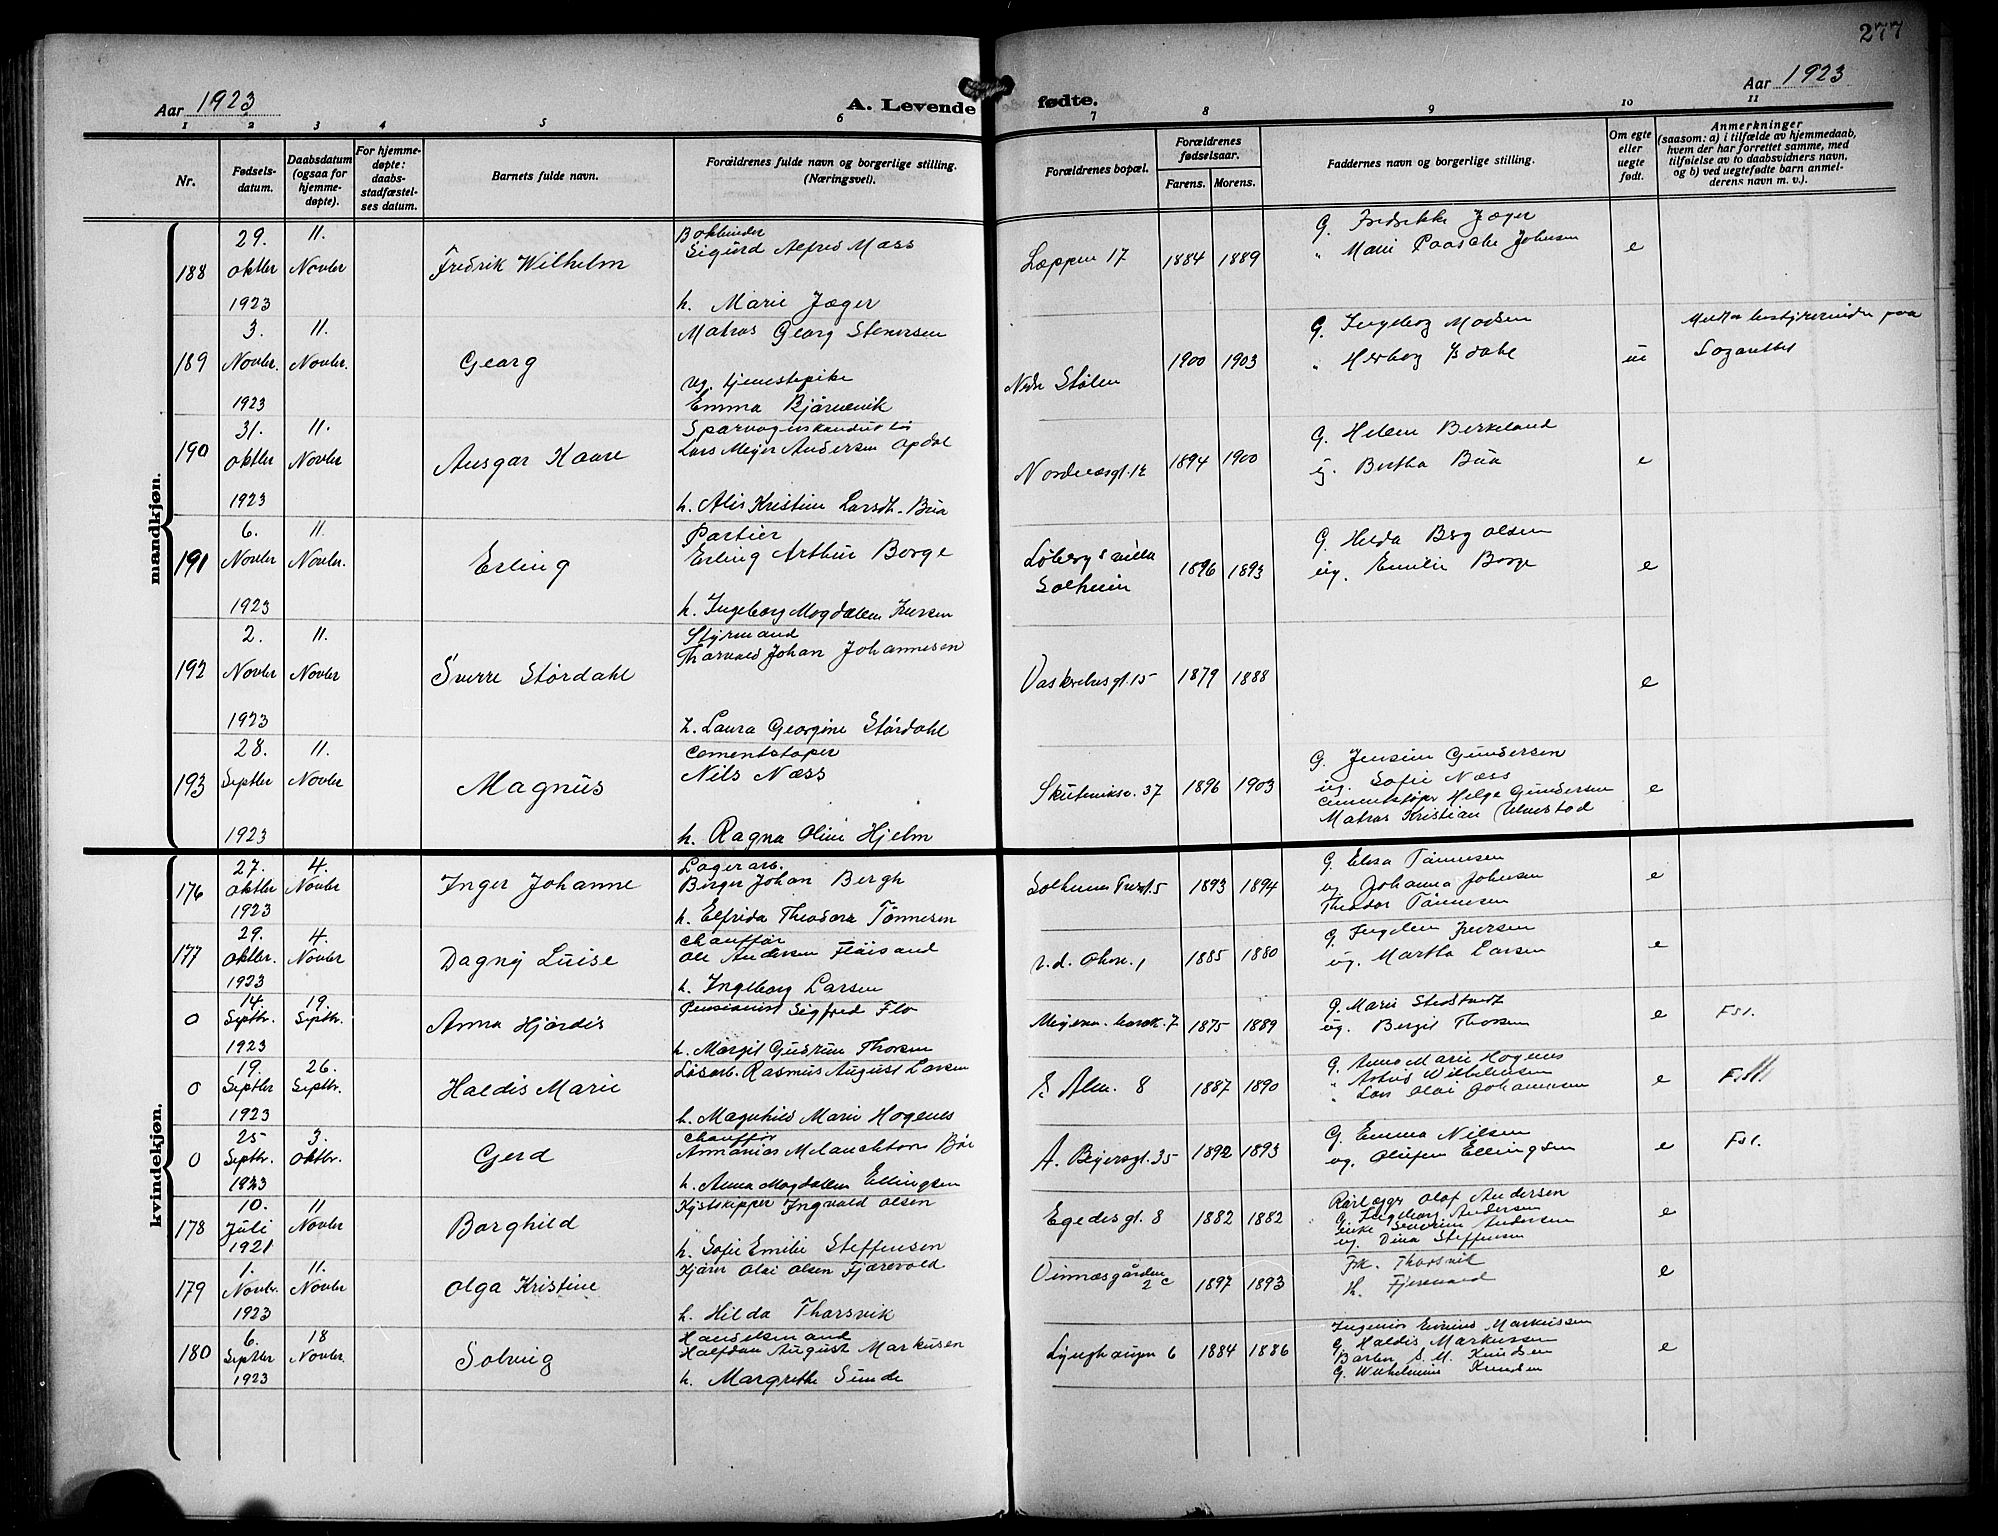 277
Aar 1923
A. Levende fødte.
Aar 1923
1 2 3 4 5 6 7 8 9 10 11
Nr.
Fødsels-
datum.
Daabsdatum
(ogsaa for
hjemme-
døpte).
For hjemme-
døpte:
daabs-
stadfæstel-
ses datum.
Barnets fulde navn.
Forældrenes fulde navn og borgerlige stilling.
(Næringsvei).
Forældrenes bopæl.
Forældrenes
fødselsaar.
Farens. Morens.
Faddernes navn og borgerlige stilling.
Om egte
eller
uegte
født.
Anmerkninger
(saasom: a) i tilfælde av hjemmedaab,
hvem der har forrettet samme, med
tilføielse av to daabsvidners navn,
og b) ved uegtefødte barn anmel-
derens navn m. v.).
mandkjøn.
188
29.
oktbr
1923
11.
Novbr
Fredrik Wilhelm
Bokbinder
Sigurd Alfred Næss
h. Marie Jæger
Læppen 17
1884 1889
G. Fredrikke Jæger
" Marie Paasche Johnsen
e
189
3.
Novbr.
1923
11.
Novbr.
Georg
Matros Georg Stenersen
ug. tjenestepike
Emma Bjørnevik
Nedr Stølen
1900 1903
G. Ingeborg Madsen
" Herborg Isdahl
u
190
31.
oktbr
1923
11.
Novbr
Ansgar Kaare
Sporvognskonduktør
Lars Meyer Andersen Opdal
h. Alis Kristine Larsdt. Bua
Nordnæsgt 12
1894 1900
G. Helene Berkeland
ug. Bertha Bua
e
191
6.
Novbr
1923
11.
Novbr.
Erling
Portier
Erling Arthur Borge
h. Ingeborg Magdalene Iversen
Løbergs villa
Solheim
1896 1893
G. Hilda Berg Olsen
ug. Emilie Borge
e
192
2.
Novbr
1923
11.
Novbr
Sverre Størdahl
Styrmand
Thorvald Johan Johannesen
h. Laura Georgine Størdahl
Vaskerhusgt. 15
1879 1888
e
193
28.
Septbr
1923
11.
Novbr
Magnus
Cementstøper
Nils Næss
h. Ragna Oline Hjelm
Skuteviksv. 37
1896 1903
G. Jensine Gundersen
ug. Sofie Næss
Cementstøper Helge Gundersen
Matros Kristian
e
kvindekjøn.
176
27.
oktbr
1923
4.
Novbr
Inger Johanne
Lagerarb.
Birger Johan Bergh
h. Elfrida Theodora Tønnesen
1893 1894
G. Elisa Tønnesen
ug. Johanna Johnsen
Theodor Tønnesen
e
177
29.
oktbr.
1923
4.
Novbr
Dagny Luise
Chauffør
Ole Andersen Fløisand
h. Ingeborg Larsen
1885 1880
G. Iversen
ug. Martha Larsen
e
0
14.
Septbr.
1923
19.
Septbr.
Anna Hjørdis
Pensionist Sigfred Flo
h. Margit Gudrun Thorsen
1875 1889
G. Marie
ug. Bergit Thorsen
e
Fsl.
0
19.
Septbr
1923
26.
Septbr.
Haldis Marie
Løsarb. Rasmus August Larsen
h. Magnhild Marie Hogenes
E Alm. 8
1887 1890
G. Anna Marie Hogenes
" Astrid Wilhelmsen
" Lars Olai Johannesen
e
Fsl.
0
25
Septbr.
1923
3.
oktbr.
Gerd
Chauffør
Annanias Melanchton Bøe
h. Anna Magdalene Ellingsen
A. Beyersgt. 35
1892 1893
G. Emma Nilsen
ug. Olufine Ellingsen
e
Fsl.
178
10.
Juli
1921
11
Novbr
Borghild
Kystskipper Ingvald Olsen
h. Sofie Emilie Steffensen
Egedesgt. 8
1882 1882
Rørlægger Olof Andersen
G. Ingeborg Andersen
Enke Severine Andersen
ug. Dina Steffensen
e
179
1.
Novbr.
1923
11.
Novbr
Olga Kristine
Kjører Olai Olsen Fjærevold
h. Hilda Thorsvik
Vinnæsgården
2 c
1897 1893
Frk. Thorsvik
H. Fjærevold
e
180
6.
Septbr
1923
18
Novbr.
Solveig
Handelsmand
Halfdan August Markusen
h. Margrethe Sunde
Lynghaugen 6
1884 1886
Ingeniør Markussen
G. Haldis Markussen
S. M. Knudsen
G. Wilhelmine Knudsen
e